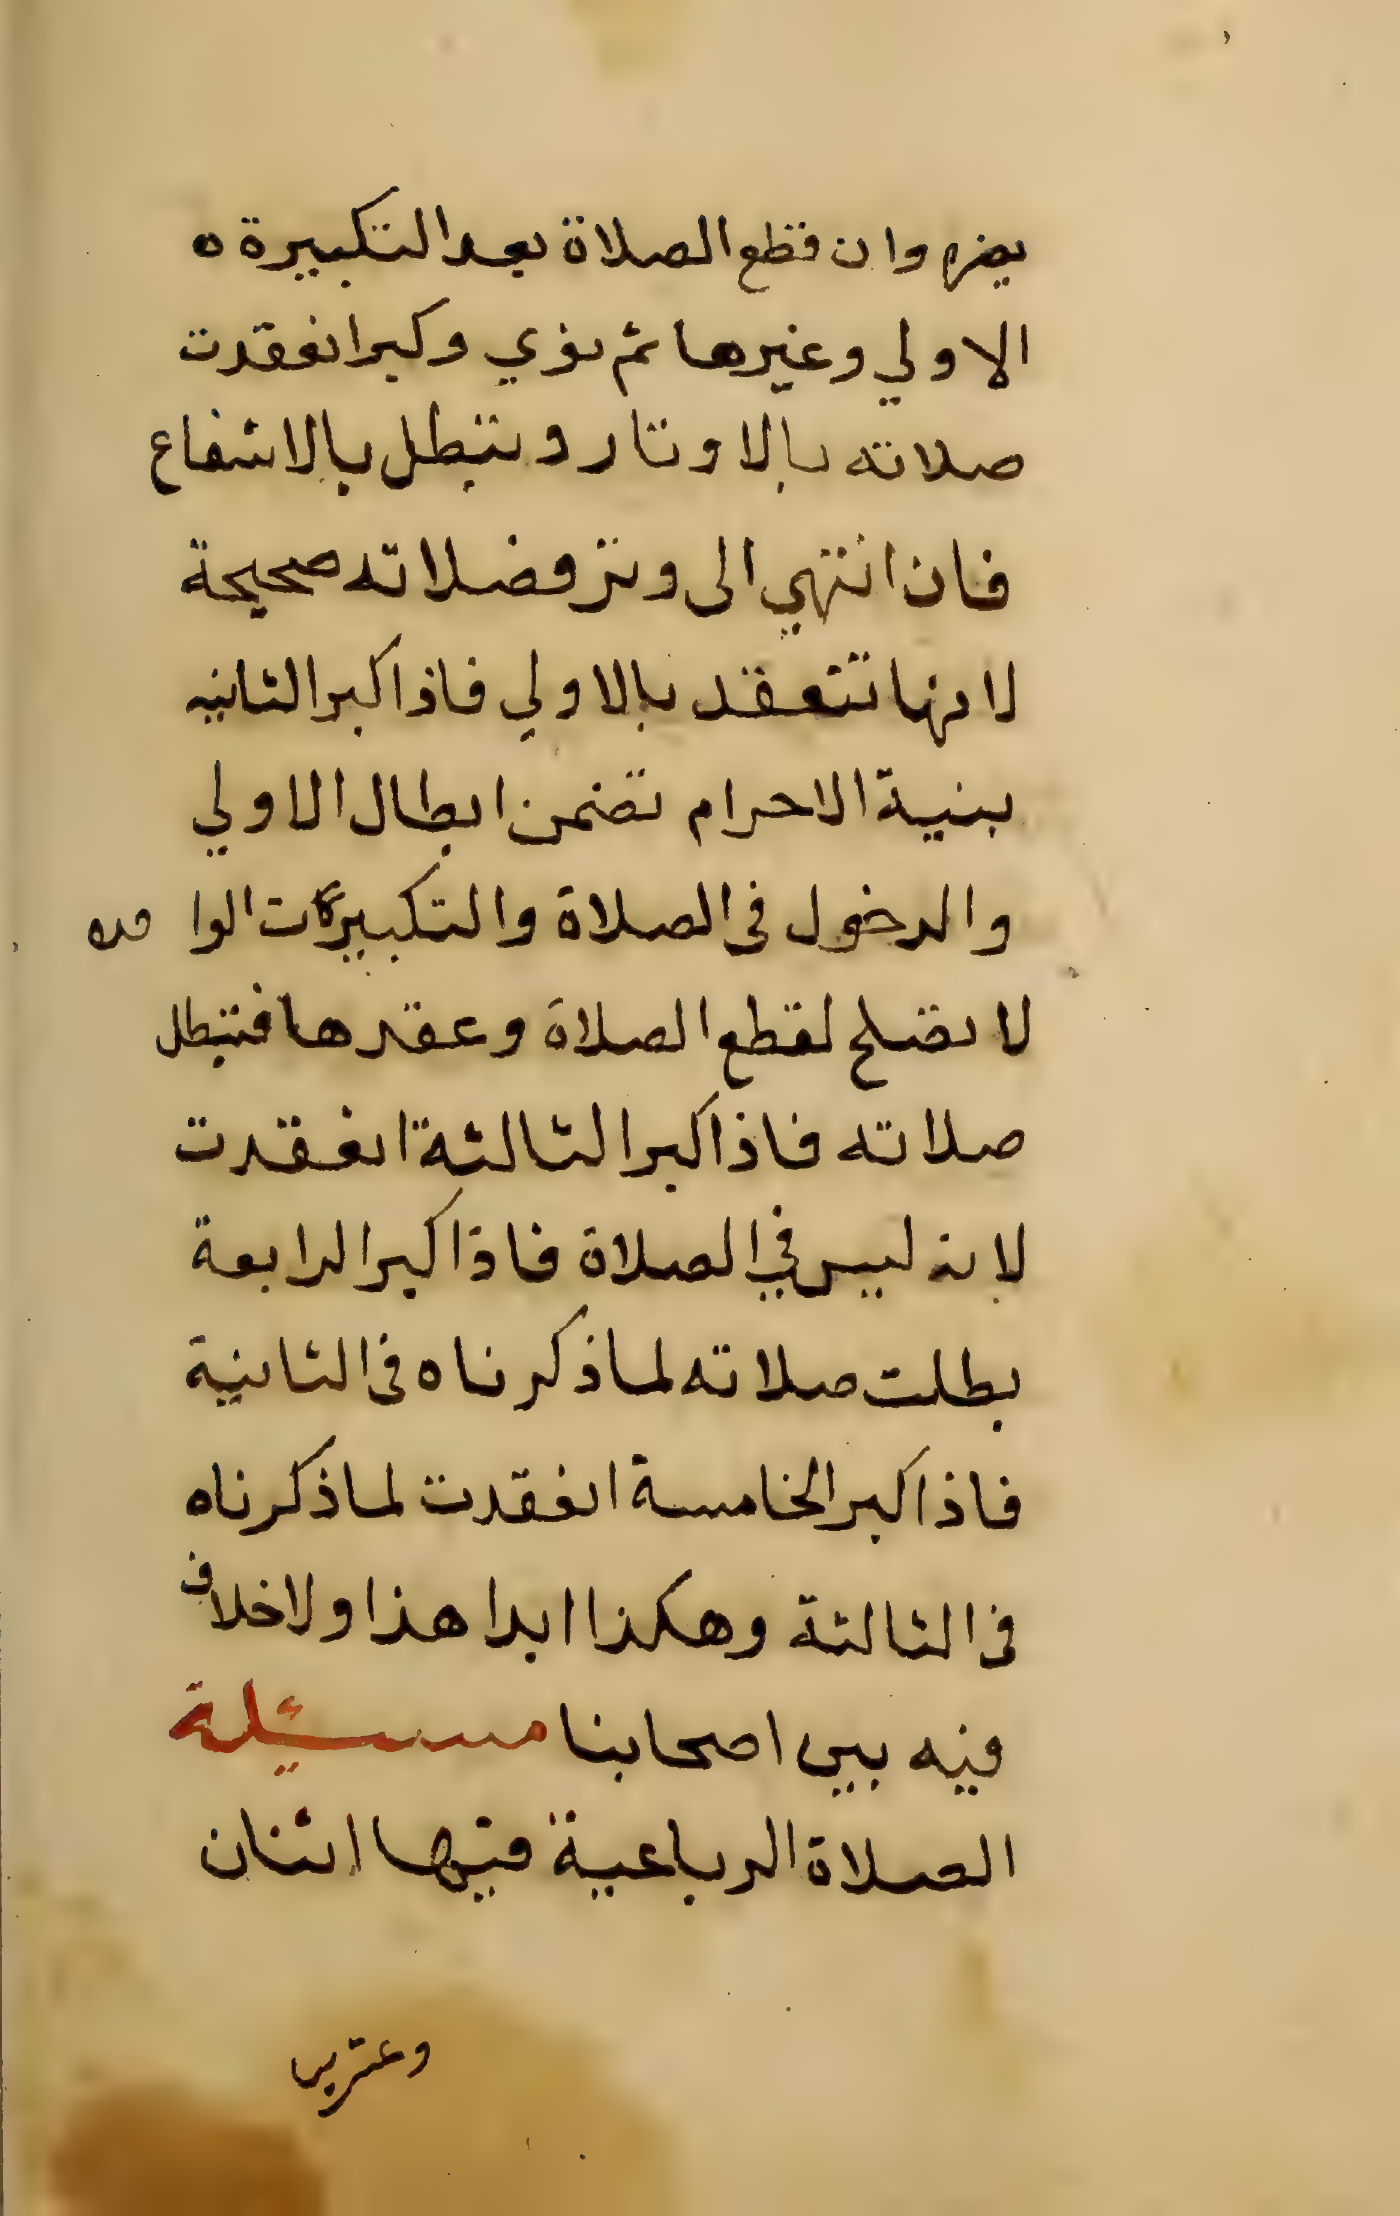 يضره وان قطع الصلاة بعد التكبيرة ه
الاولي وغيرها ثم نوي وكبر انعقدت
صلاته بالاوتار وتبطل بالاشفاع
فان انتهي الى وتر فصلاته صحيحة
لانها تنعقد بالاولي فاذا كبر الثانيه
بنية الاحرام تضمن ابطال الاولي
والدخول في الصلاة والتكبيرات الوا حده
لا تصلح لقطع الصلاة وعقدها فتبطل
صلاته فاذا كبر الثالثة انعقدت
لانه ليس في الصلاة فاذا كبر الرابعة
بطلت صلاته لما ذكرناه في الثانية
فاذا كبر الخامسة انعقدت لما ذكرناه
في الثالثة وهكذا ابدا هذا ولا خلاف
فيه بين اصحابنا مسئيلة
الصلاة الرباعية فيها اثنان
وعشرين